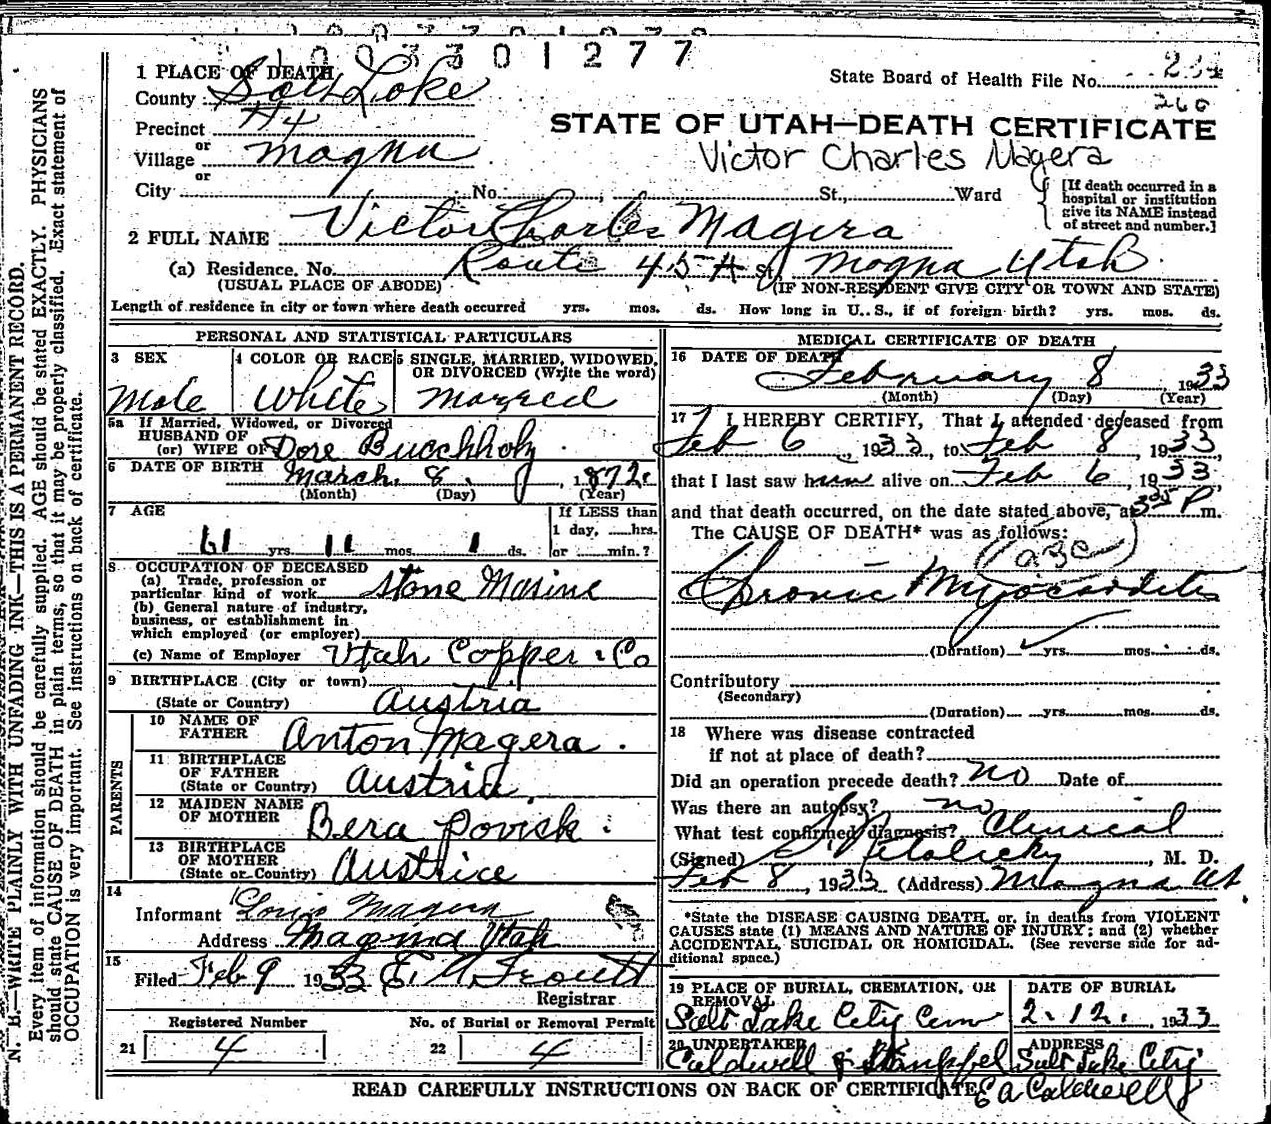 003301277
1 PLACE OF DEATH
State Board of Health File No. 234
County Salt Lake
260
Precinct #4
STATE OF UTAH—DEATH CERTIFICATE
or
Village Magna
Victor Charles Magera
or
City No. St., Ward
[If death occurred in a
hospital or institution
give its NAME instead
of street and number.]
2 FULL NAME Victor Charles Magera
(a) Residence, No. Route 45 A St. Magna Utah
(USUAL PLACE OF ABODE) (IF NON-RESIDENT GIVE CITY OR TOWN AND STATE)
Length of residence in city or town where death occurred yrs. mos. ds. How long in U. S., if of foreign birth? yrs. mos. ds.
PERSONAL AND STATISTICAL PARTICULARS
3 SEX 4 COLOR OR RACE 5 SINGLE, MARRIED, WIDOWED,
OR DIVORCED (Write the word)
Male White Married
5a If Married, Widowed, or Divorced
HUSBAND OF
(or) WIFE OF Dore Bucchholz
6 DATE OF BIRTH March 8, 1872
(Month) (Day) (Year)
7 AGE If LESS than
1 day, hrs.
61 yrs. 11 mos. 1 ds. or min.?
8 OCCUPATION OF DECEASED
(a) Trade, profession or
particular kind of work Stone Masine
(b) General nature of industry,
business, or establishment in
which employed (or employer)
(c) Name of Employer Utah Copper Co
9 BIRTHPLACE (City or town)
(State or Country) Austria
PARENTS
10 NAME OF
FATHER Anton Magera.
11 BIRTHPLACE
OF FATHER
(State or Country) Austria
12 MAIDEN NAME
OF MOTHER Bera Povisk
13 BIRTHPLACE
OF MOTHER
(State or Country) Austrice
14
Informant Louis Magera
Address Magna Utah
15
Filed Feb 9 1933 E. Troutt
Registrar
Registered Number No. of Burial or Removal Permit
21 4 22 4
MEDICAL CERTIFICATE OF DEATH
16 DATE OF DEATH
February 8, 1933
(Month) (Day) (Year)
17 I HEREBY CERTIFY, That I attended deceased from
Feb 6, 1933, to Feb 8, 1933,
that I last saw him alive on Feb 6, 1933,
and that death occurred, on the date stated above, at 335 P m.
The CAUSE OF DEATH* was as follows:
Chronic Myocarditis
(Duration) yrs. mos. ds.
Contributory
(Secondary)
(Duration) yrs. mos. ds.
18 Where was disease contracted
if not at place of death?
Did an operation precede death? no Date of
Was there an autopsy? no
What test confirmed diagnosis? Clinical
(Signed) M. D.
Feb 8, 1933 (Address) Magna Ut
*State the DISEASE CAUSING DEATH, or, in deaths from VIOLENT
CAUSES state (1) MEANS AND NATURE OF INJURY; and (2) whether
ACCIDENTAL, SUICIDAL OR HOMICIDAL. (See reverse side for ad-
ditional space.)
19 PLACE OF BURIAL, CREMATION, OR
REMOVAL
Salt Lake City Cem
DATE OF BURIAL
2.12. 1933
20 UNDERTAKER
Caldwell &
ADDRESS
Salt Lake City
READ CAREFULLY INSTRUCTIONS ON BACK OF CERTIFICATE
E A Caldwell
N. B.—WRITE PLAINLY WITH UNFADING INK—THIS IS A PERMANENT RECORD.
Every item of information should be carefully supplied. AGE should be stated EXACTLY. PHYSICIANS
should state CAUSE OF DEATH in plain terms, so that it may be properly classified. Exact statement of
OCCUPATION is very important. See instructions on back of certificate.